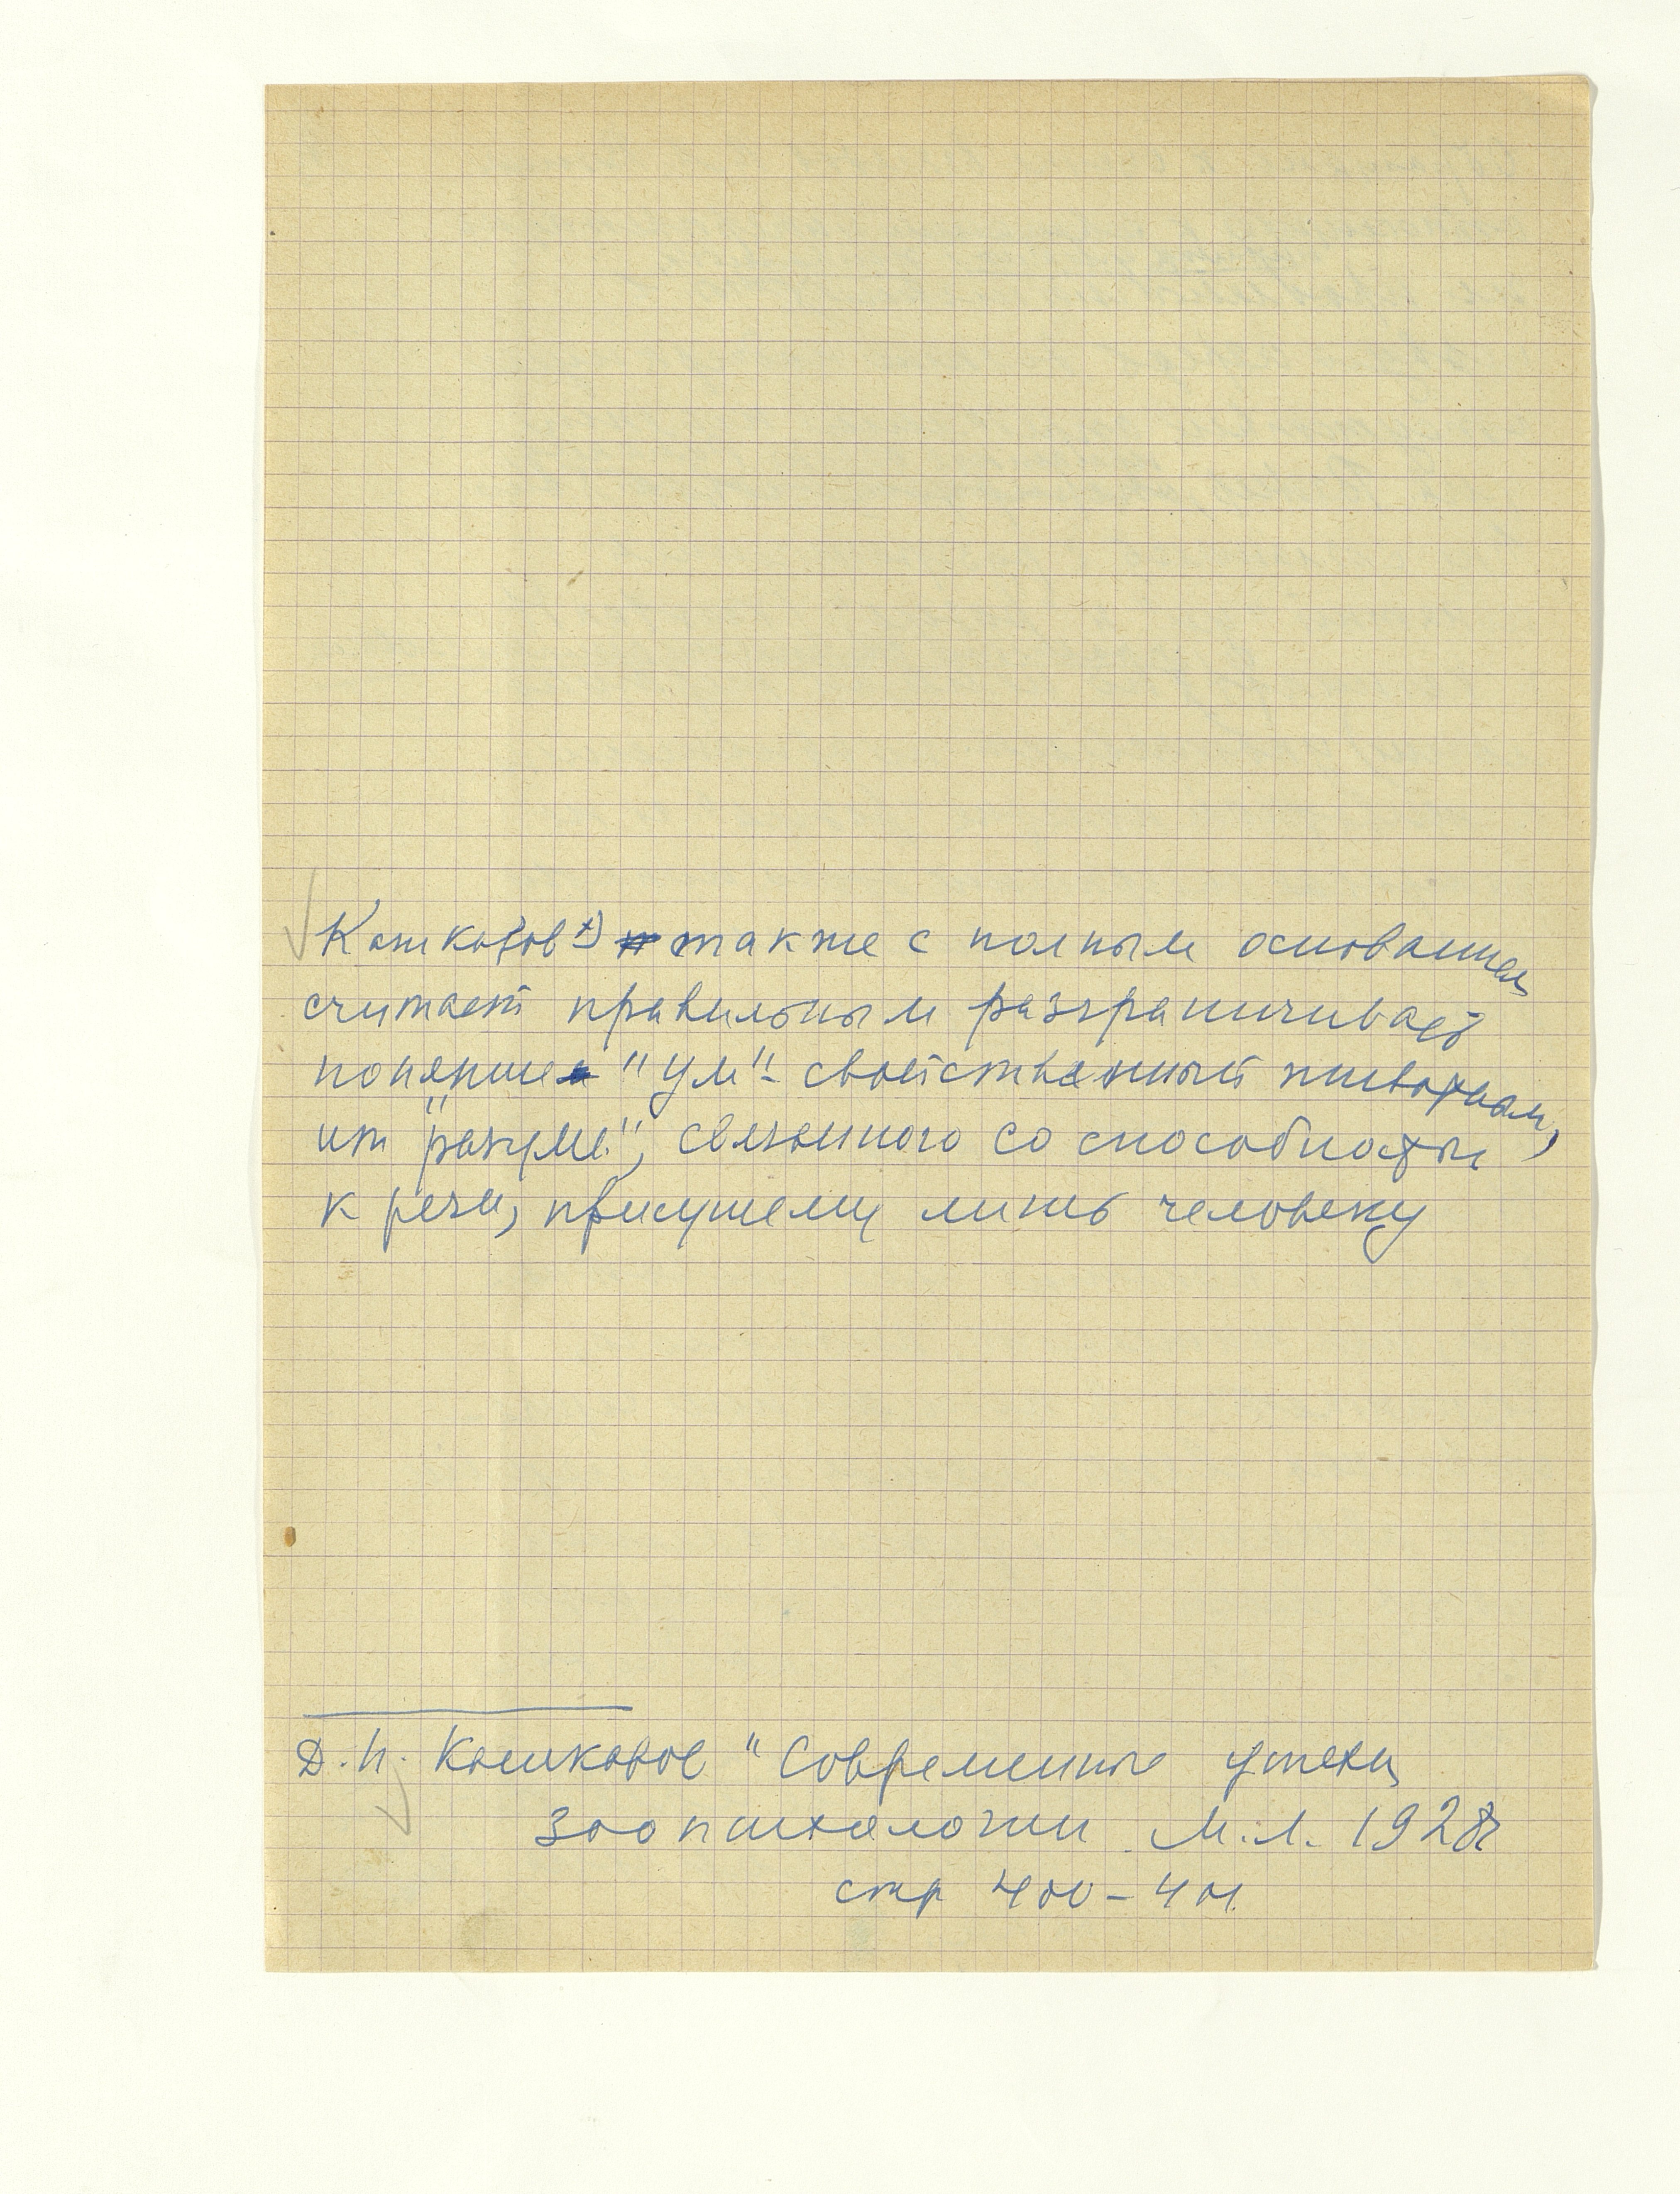 Кашкаров *) также с полным основанием
считает правильным разграничивать
понятие "ум" - свойственный животным,
от "разума", связанного со способностью
к речи, присущему лишь человеку
Д. Н. Кашкаров "Современные успехи
зоопсихологии М.Л. 1928
стр 400-401.